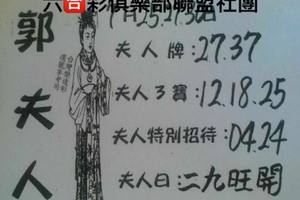 六合彩俱樂部聯盟社團
郭夫人
夫人牌:27.37
夫人3寶:12.18.25
夫人特別招待:04.24
夫人曰:二九旺開